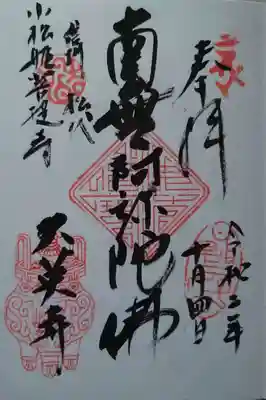 奉拝
令和二年
十月四日
南無阿弥陀佛
信州松代
小松姫菩提寺
大英寺